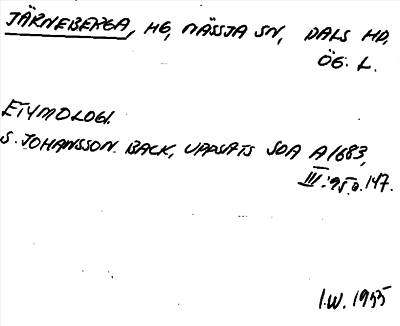 JÄRNEBERGA, HG, NÄSSJA SN, DALS HD,
ÖG. L.
ETYMOLOGI.
S. JOHANSSON. BACK, UPPSATS SOA A 1683,
III. s. 147.
I.W. 1955